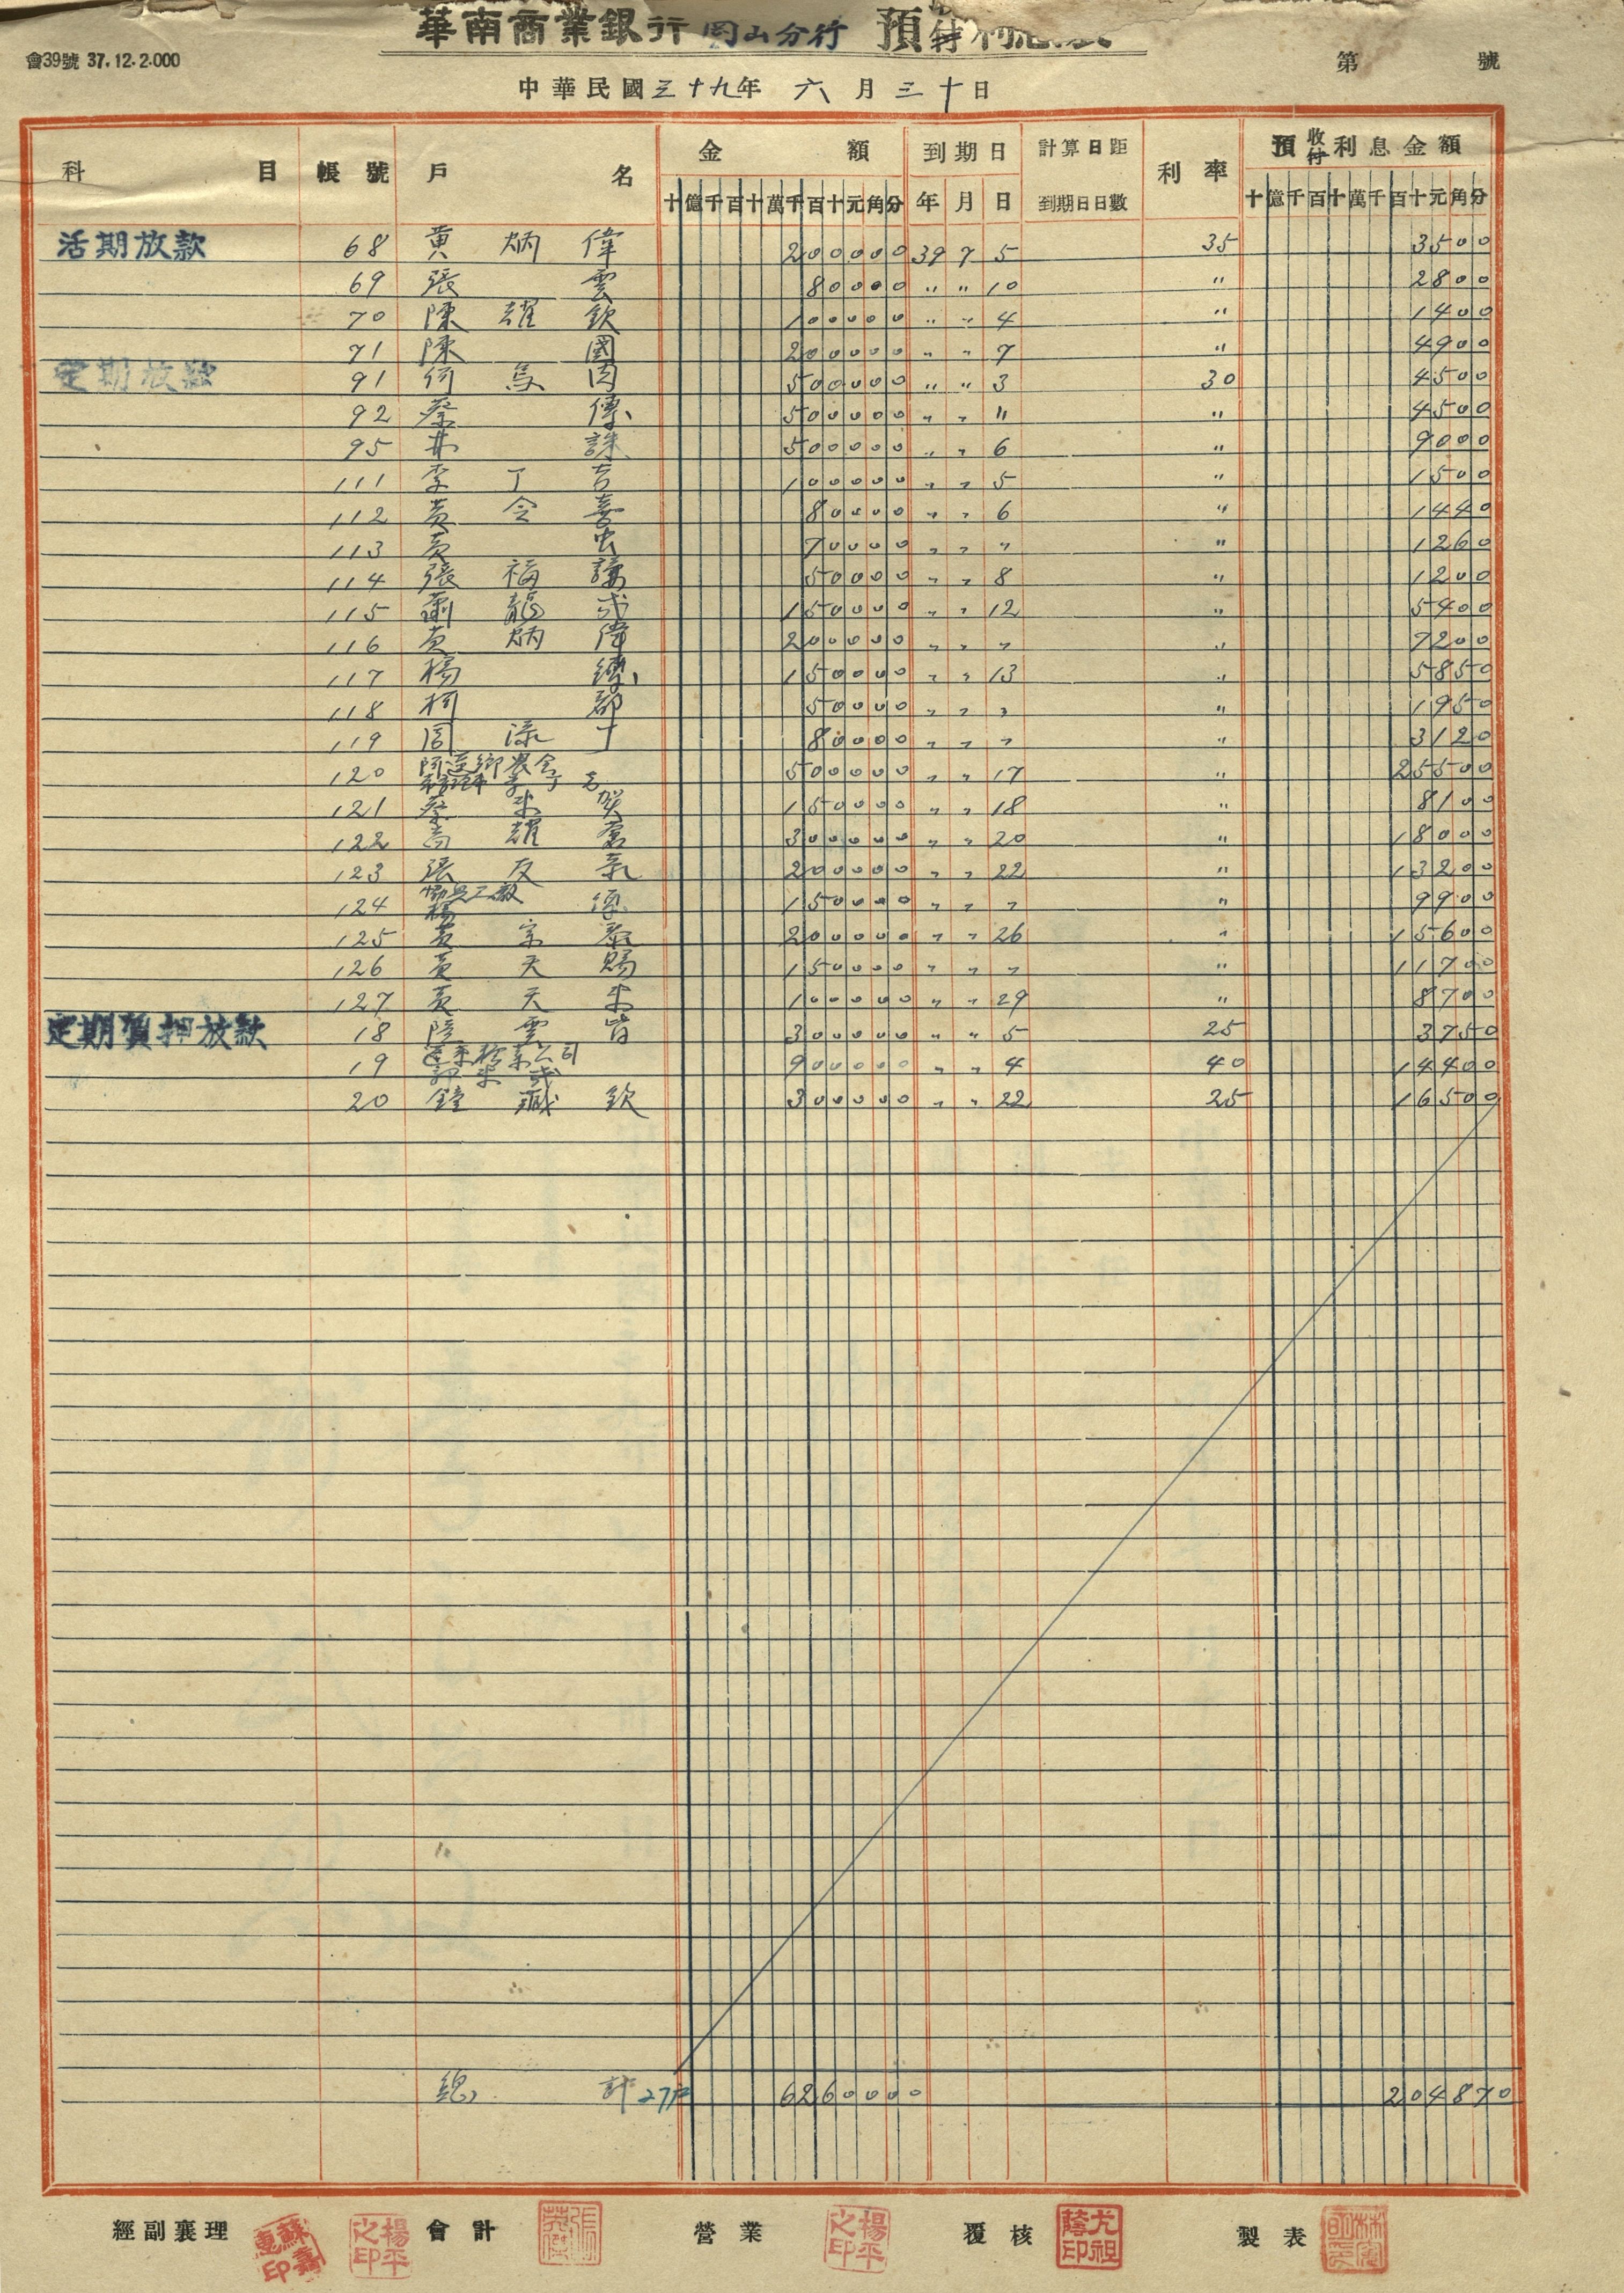 華南商業銀行 岡山分行 預付利息表
會39號 37.12.2.000
第 號
中華民國三十九年 六月三十日
科目 帳號 戶名 金額 到期日 計算日距到期日日數 利率 預收付利息金額
十億千百十萬千百十元角分 年 月 日 十億千百十萬千百十元角分
活期放款 68 黃炳偉 200000 39 7 5 35 3500
69 張雲 80000 〃 〃 10 〃 2800
70 陳耀欽 100000 〃 〃 4 〃 1400
71 陳國 200000 〃 〃 7 〃 4900
定期放款 91 何 500000 〃 〃 3 30 4500
92 蔡傳 500000 〃 〃 〃 〃 4500
95 500000 〃 〃 6 〃 9000
111 李丁吉 100000 〃 〃 5 〃 1500
112 黃令喜 80000 〃 〃 6 〃 1440
113 黃虫 70000 〃 〃 〃 〃 1260
114 張福 50000 〃 〃 8 〃 1200
115 蕭龍 150000 〃 〃 12 〃 5400
116 黃炳偉 200000 〃 〃 〃 〃 7200
117 楊 150000 〃 〃 13 〃 5850
118 柯郡 50000 〃 〃 〃 〃 1950
119 80000 〃 〃 〃 〃 3120
120 阿蓮鄉農會 500000 〃 〃 17 〃 25500
121 蔡來賀 150000 〃 〃 18 〃 8100
122 高耀 300000 〃 〃 20 〃 18000
123 張友 200000 〃 〃 22 〃 13200
124 工廠 楊 150000 〃 〃 〃 〃 9900
125 黃宗 200000 〃 〃 26 〃 15600
126 黃天賜 150000 〃 〃 〃 〃 11700
127 黃天來 100000 〃 〃 29 〃 8700
定期質押放款 18 陸雲皆 300000 〃 〃 5 25 3750
19 公司 900000 〃 〃 4 40 14400
20 鐘欽 300000 〃 〃 22 25 16500
總計 27戶 6260000 204870
經副襄理 會計 營業 覆核 製表
楊平之印 楊平之印 尤祖蔭印